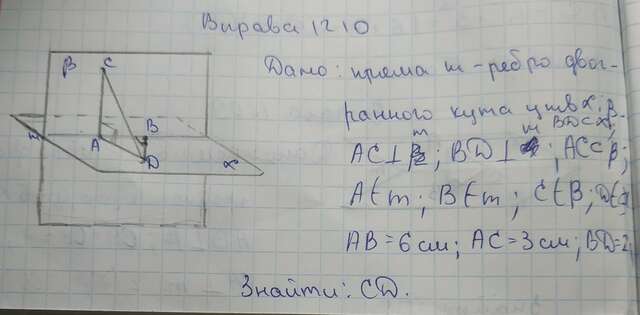 Вправа 1210
Дано: пряма m - ребро двог-
ранного кута між α і β.
AC⊥m; BD⊥m; AC⊂β; BD⊂α;
A∈m; B∈m; C∈β; D∈α
AB=6см; AC=3см; BD=2
Знайти: CD.
β C
m A B
D α